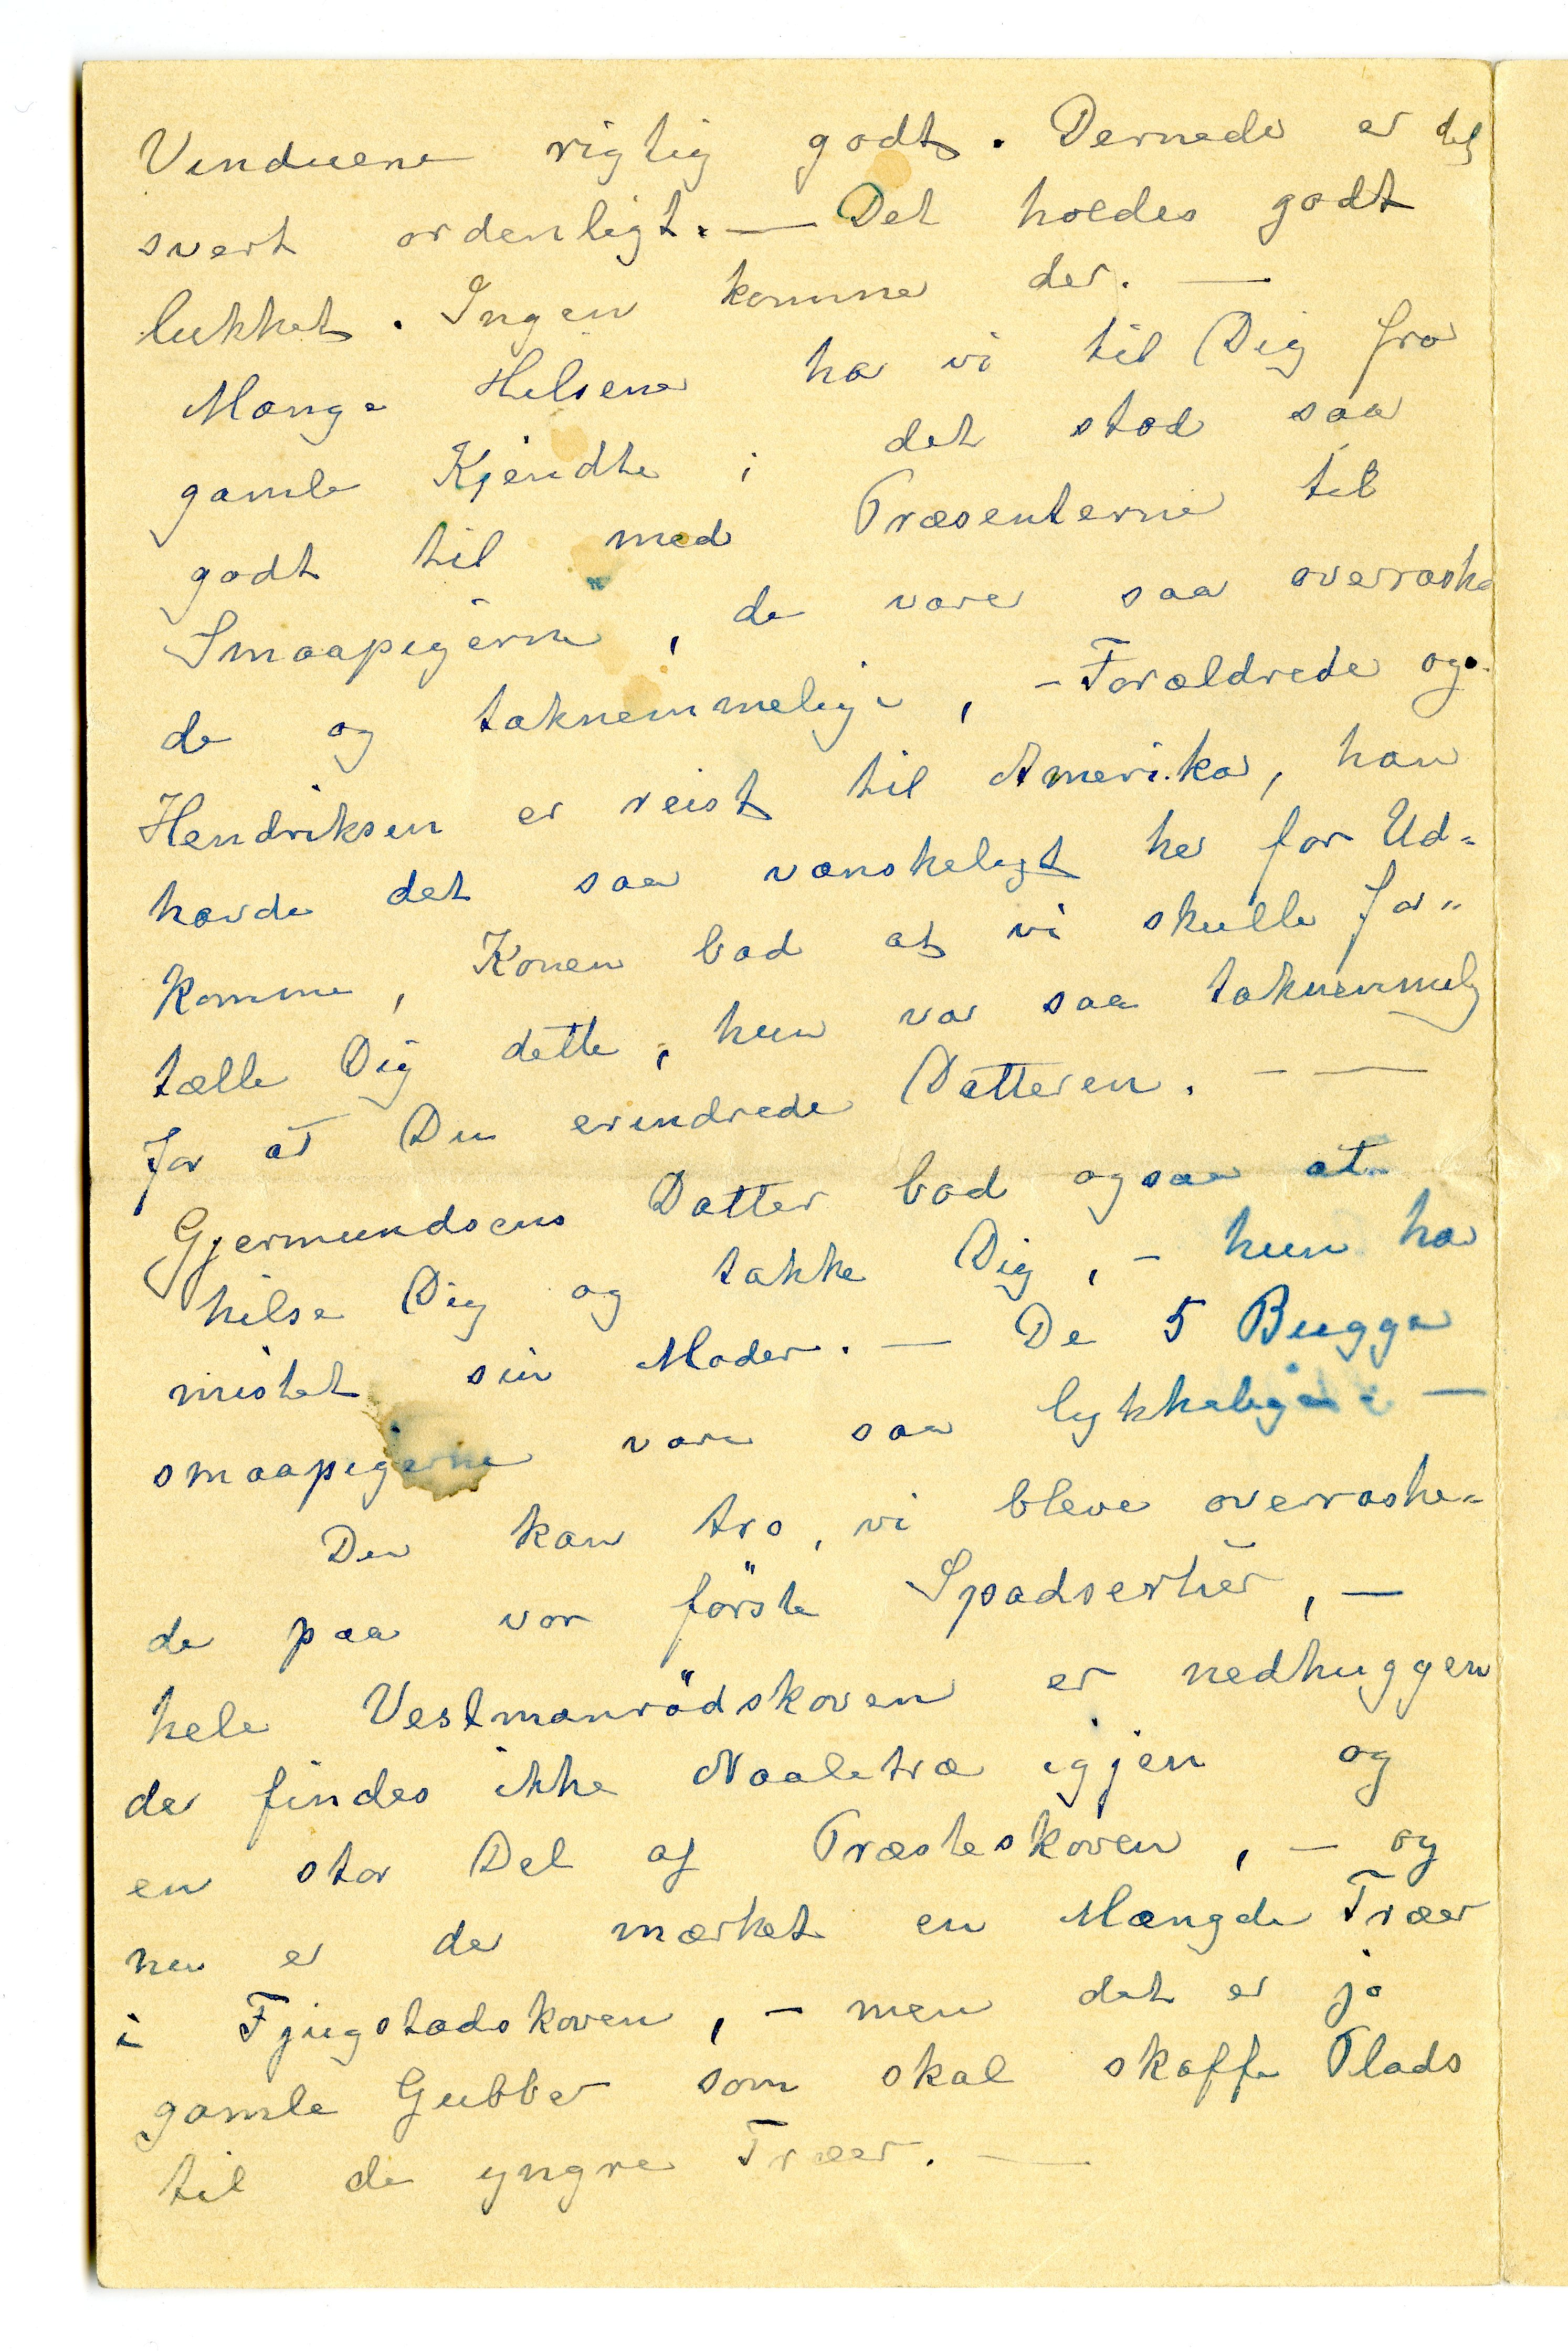 Vinduene rigtig godt. Dernede er det
svert ordenligt. — Det holdes godt
lukket. Ingen kommer der. —
Mange Hilsener ha vi til Dig fra
gamle Kjendte; det stod saa
godt til med Præsenterne til
Smaapigerne, de vare saa overraske
de og taknemmelige, - Forældrede og.
Hendriksen er reist til Amerika, han
havde det saa vanskeligt her for Ud=
komme, Konen bad at vi skulle for"
tælle Dig dette, hun var saa taknemmelig
for at Du erindrede Datteren. - —
Gjermundsens Datter bad ogsaa at
hilse Dig og takke Dig, - hun ha
mistet sin Moder. — De 5 Bugge
smaapigerne vare saa lykkelige —
Du kan tro, vi bleve overraske=
de paa vor förste Spadsertur, —
hele Vestmanrödskoven er nedhuggen
der findes ikke Naaletræ igjen og
en stor Del af Præsteskoven, — og
nu er der mærket en Mængde Træer
i Fjugstadskoven, - men det er jo
gamle Gubber som skal skaffe Plads
til de yngre Træer. —